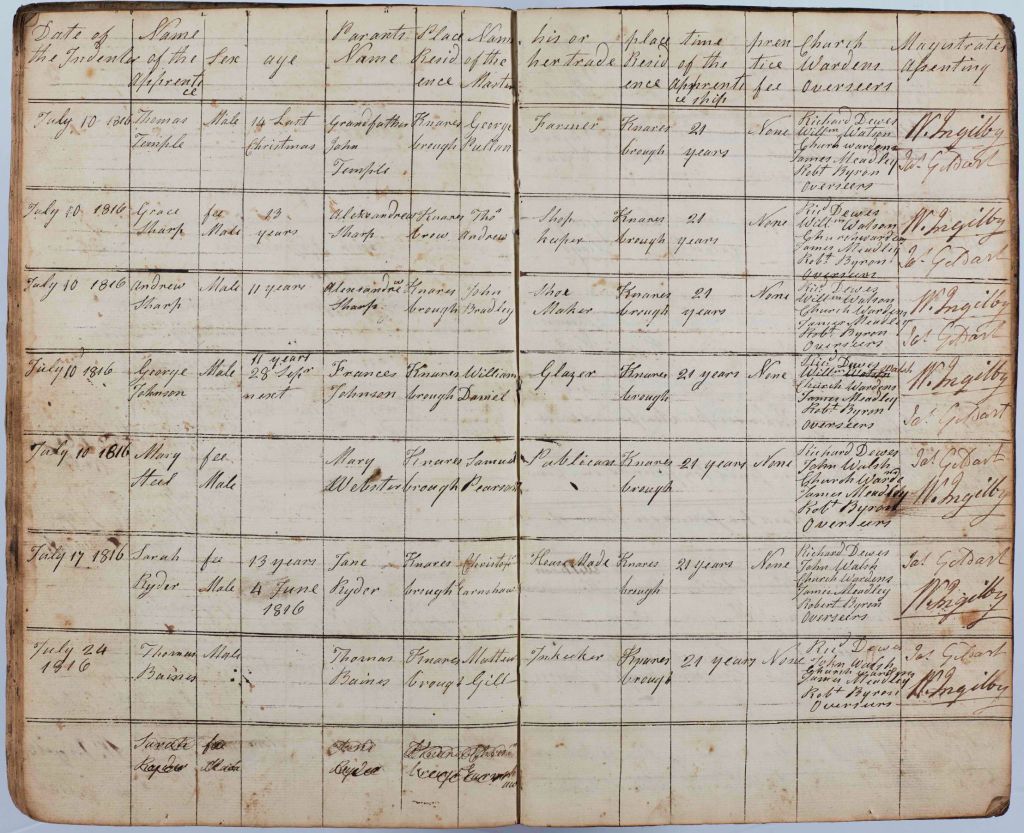 Date of the Indenter
Name of the Apprentice
Sex
age
Parants Name
Place Residence
Name of the Master
his or her trade
place Residence
time of the Apprenticeship
prentice fee
Church Wardens Overseers
Magistrates Assenting
July 10 1816
Thomas Temple
Male
14 Last Christmas
Grandfather John Temple
Knaresbrough
George Pullan
Farmer
Knaresbrough
21 years
None
Richard Dewes
Willm Watson
Church wardens
James Meadley
Robt Byron
Overseers
W. Ingilby
Jas Geldart
July 10 1816
Grace Sharp
fee Male
13 years
Alexxandrew Sharp
Knaresbrew
Thos Andrew
Shop keeper
Knaresbrough
21 years
None
Ricd Dewes
Willm Watson
Churchwardens
James Meadley
Robt Byron
Overseers
W. Ingilby
Jas Geldart
July 10 1816
Andrew Sharp
Male
11 years
Alexxandrew Sharp
Knaresbrough
John Bradley
Shoe Maker
Knaresbrough
21 years
None
Ricd Dewes
Willm Watson
Church Wardens
James Meadley
Robt Byron
Overseers
W. Ingilby
Jas Geldart
July 10 1816
George Johnson
Male
11 years 28 Sepr next
Frances Johnson
Knaresbrough
William Daniel
Glazer
Knaresbrough
21 years
None
Ricd Dewes
Willm Watson Walsh
Church Wardens
James Meadley
Robt Byron
Overseers
W. Ingilby
Jas Geldart
July 10 1816
Mary Steel
fee Male
Mary Webster
Knaresbrough
Samuel Pearson
Publican
Knaresbrough
21 years
None
Richard Dewes
John Walsh
Church Wardns
James Meadley
Robt Byron
Overseers
Jas Geldart
W. Ingilby
July 17 1816
Sarah Ryder
fee Male
13 years 4 June 1816
Jane Ryder
Knaresbrough
Christopr Earnshaw
House Made
Knaresbrough
21 years
None
Richard Dewes
John Walsh
Church Wardens
James Meadley
Robert Byron
Overseers
Jas Geldart
W. Ingilby
July 24 1816
Thomas Baines
Male
Thomas Baines
Knaresbrough
Mattew Gill
Inkeeker
Knaresbrough
21 years
None
Ricd Dewes
John Walsh
Church Wardens
James Meadley
Robt Byron
Overseers
Jas Geldart
W. Ingilby
Sarah Ryder
fee Male